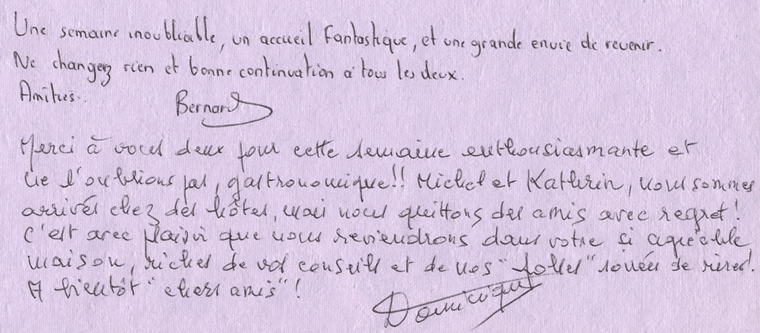 Une semaine inoubliable, un accueil fantastique, et une grande envie de revenir.
Ne changez rien et bonne continuation à tous les deux.
Amitiés.
Bernard
Merci à vous deux pour cette semaine enthousiasmante et
ne l'oublions pas, gastronomique!! Michel et Kathrin, nous sommes
arrivés chez des hôtes, mais nous quittons des amis avec regret!
C'est avec plaisir que nous reviendrons dans votre si agréable
maison, riches de vos conseils et de nos "folles" soirées de rires!
A bientôt "chers amis"!
Dominique